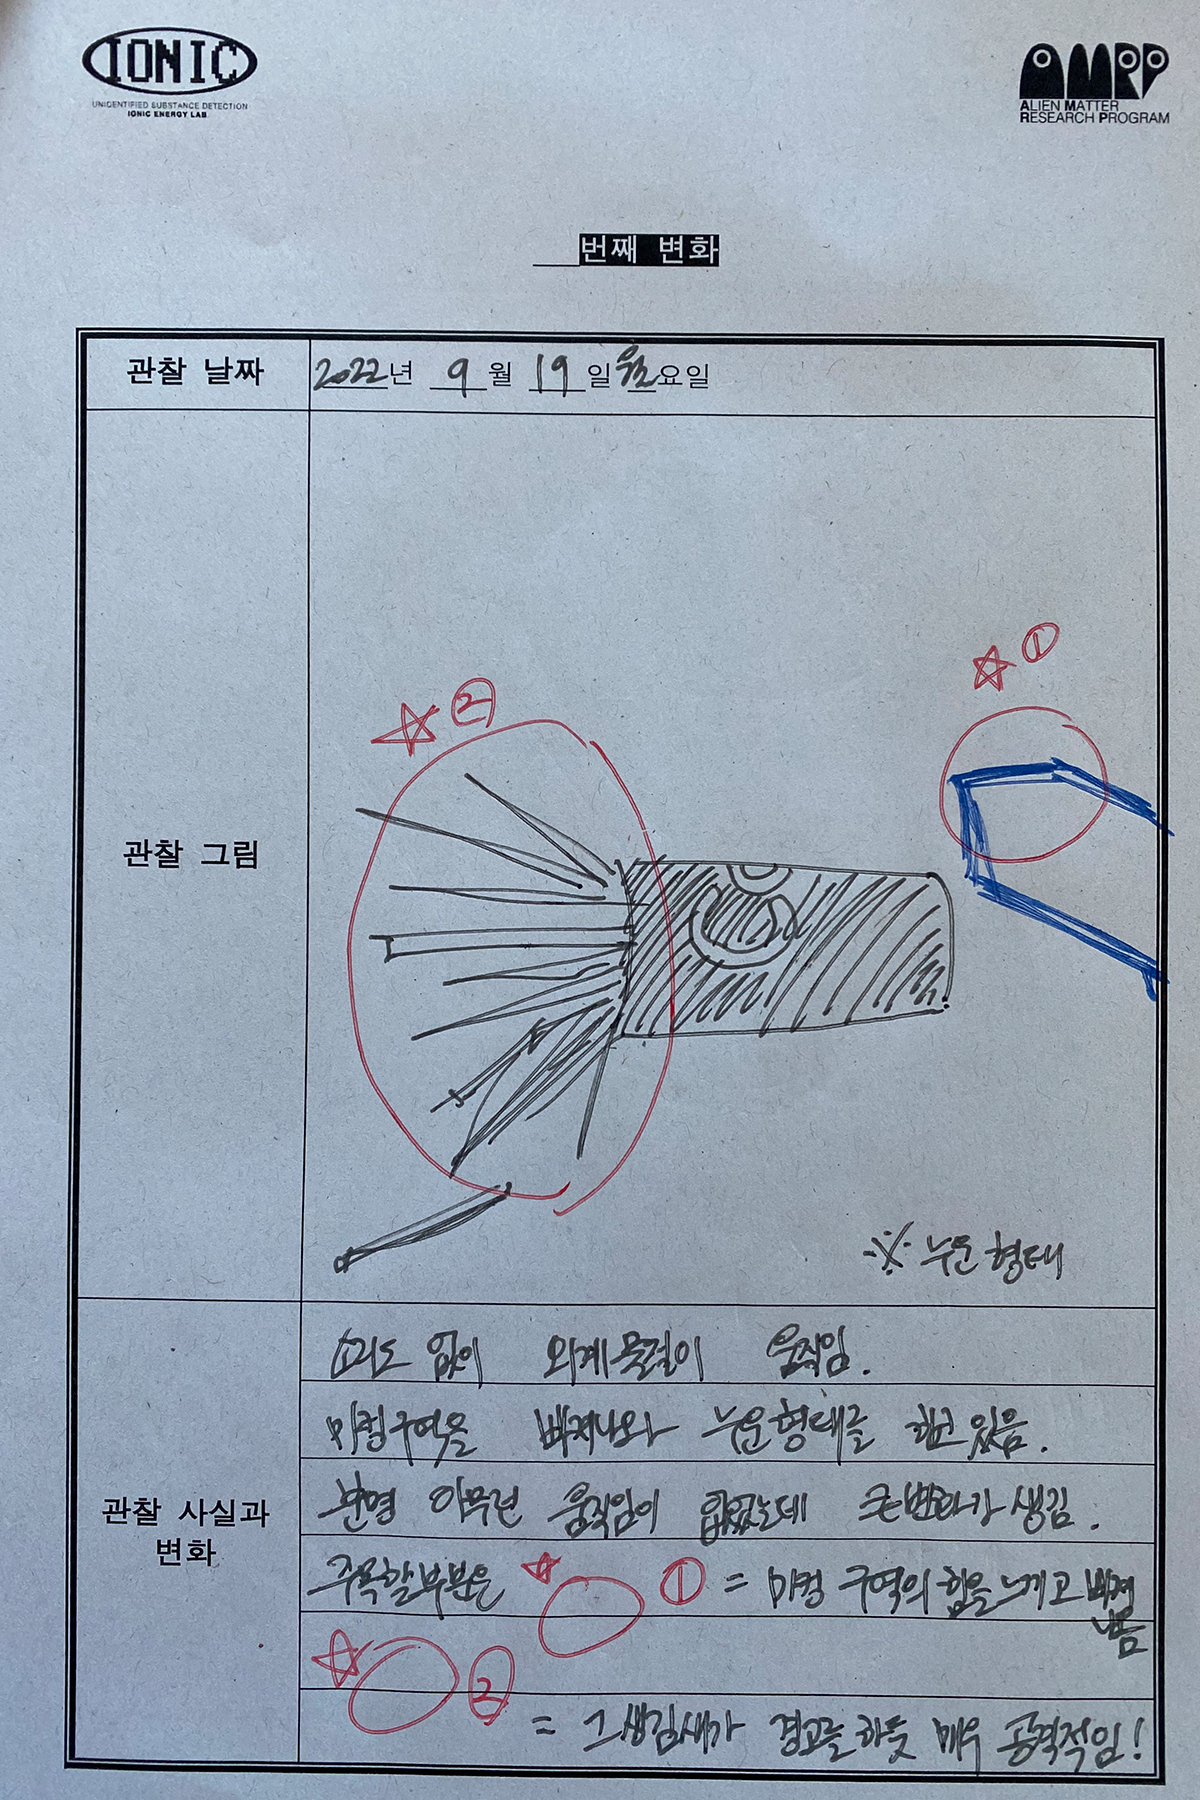 IONIC
UNIDENTIFIED SUBSTANCE DETECTION
IONIC ENERGY LAB
AMRP
ALIEN MATTER
RESEARCH PROGRAM
___번째 변화
관찰 날짜
2022년 9월 19일 월요일
관찰 그림
☆ ①
☆ ②
※ 누운 형태
관찰 사실과
변화
소리도 없이 외계물질이 움직임.
미컬구역을 빠져나와 누운형태를 하고 있음.
분명 아무런 움직임이 없었는데 큰변화가 생김.
주목할부분은 ☆ ① = 미컬 구역의 힘을 느끼고 빠져
나옴
☆ ②
= 그 생김새가 경고를 하듯 매우 공격적임!